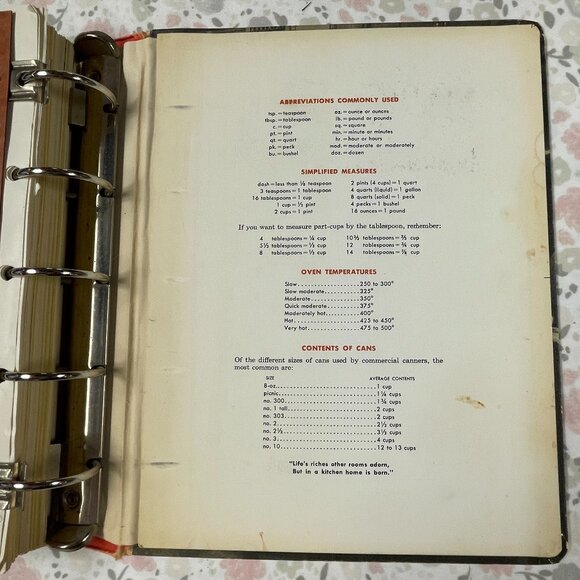 ABBREVIATIONS COMMONLY USED
tsp.=teaspoon oz.=ounce or ounces
tbsp.=tablespoon lb.=pound or pounds
c.=cup sq.=square
pt.=pint min.=minute or minutes
qt.=quart hr.=hour or hours
pk.=peck mod.=moderate or moderately
bu.=bushel doz.=dozen
SIMPLIFIED MEASURES
dash=less than ⅛ teaspoon 2 pints (4 cups)=1 quart
3 teaspoons=1 tablespoon 4 quarts (liquid)=1 gallon
16 tablespoons=1 cup 8 quarts (solid)=1 peck
1 cup=½ pint 4 pecks=1 bushel
2 cups=1 pint 16 ounces=1 pound
If you want to measure part-cups by the tablespoon, remember:
4 tablespoons=¼ cup 10⅔ tablespoons=⅔ cup
5⅓ tablespoons=⅓ cup 12 tablespoons=¾ cup
8 tablespoons=½ cup 14 tablespoons=⅞ cup
OVEN TEMPERATURES
Slow..................250 to 300°
Slow moderate..........325°
Moderate...............350°
Quick moderate.........375°
Moderately hot.........400°
Hot...................425 to 450°
Very hot...............475 to 500°
CONTENTS OF CANS
Of the different sizes of cans used by commercial canners, the
most common are:
SIZE AVERAGE CONTENTS
8-oz..............................1 cup
picnic............................1¼ cups
no. 300...........................1¾ cups
no. 1 tall........................2 cups
no. 303...........................2 cups
no. 2.............................2½ cups
no. 2½............................3½ cups
no. 3.............................4 cups
no. 10............................12 to 13 cups
"Life's riches other rooms adorn,
But in a kitchen home is born."